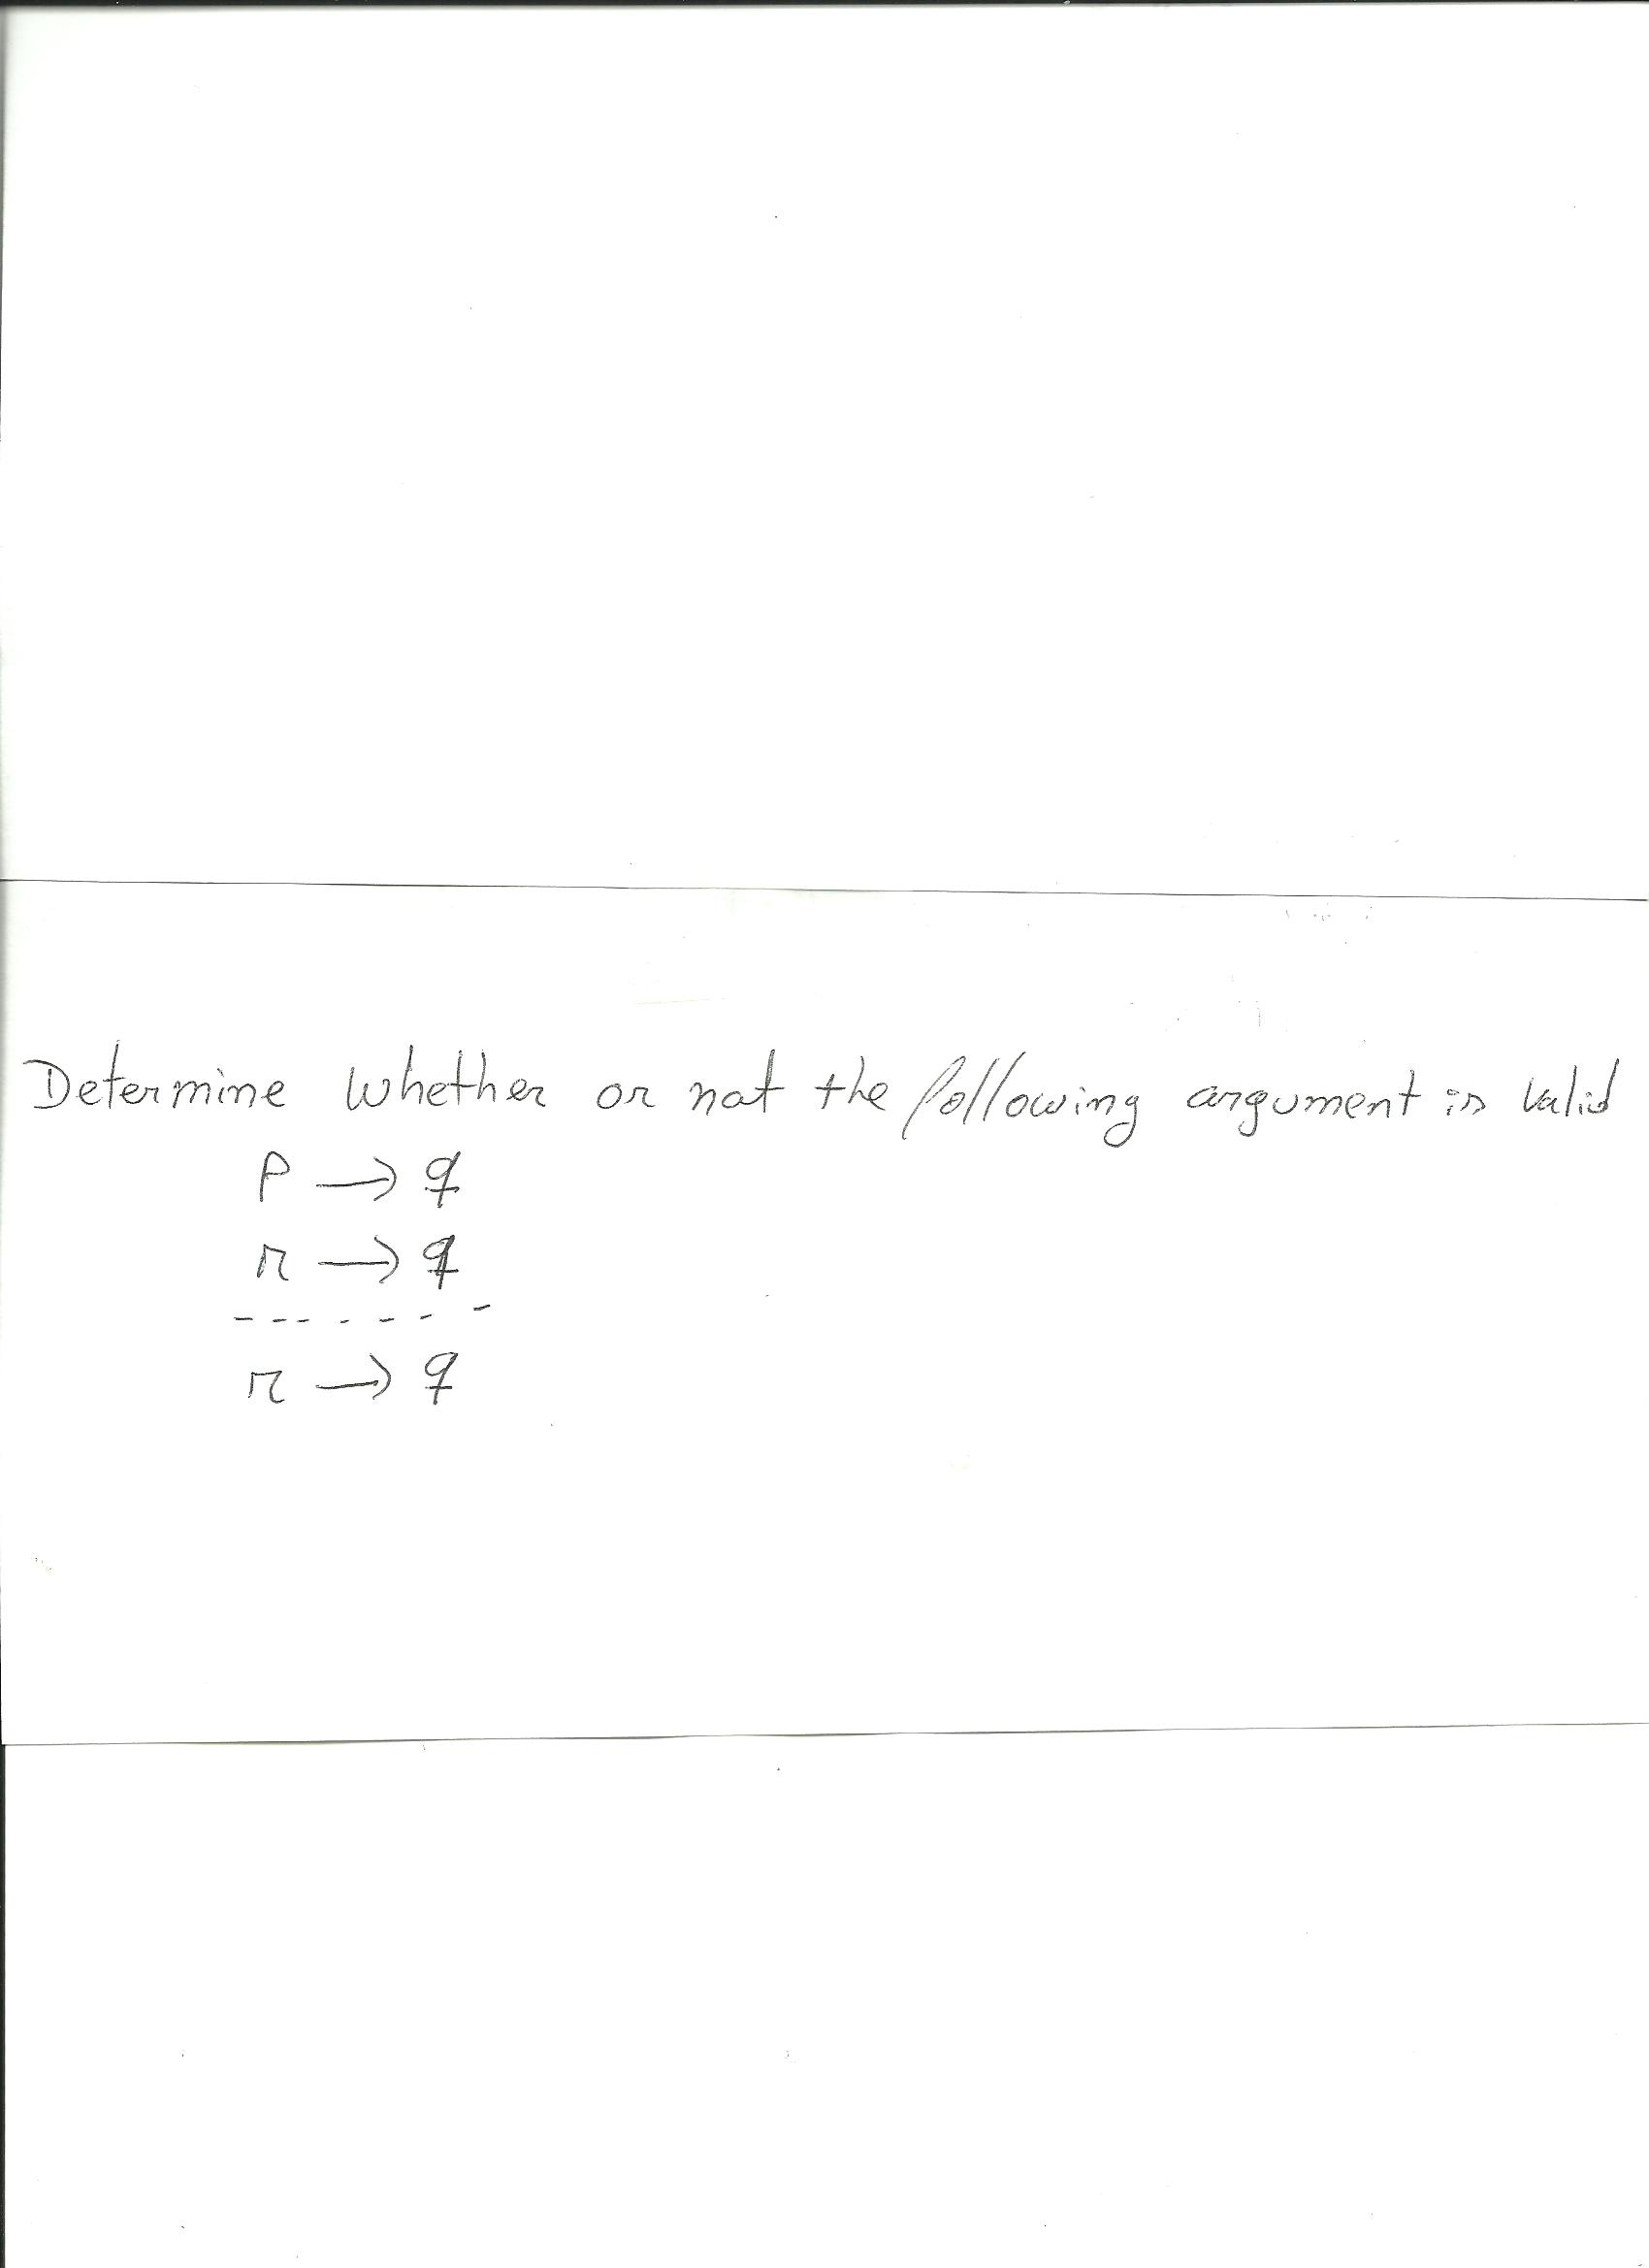 Determine whether or not the following argument is valid
p → q
r → q
- - - - - - -
r → q